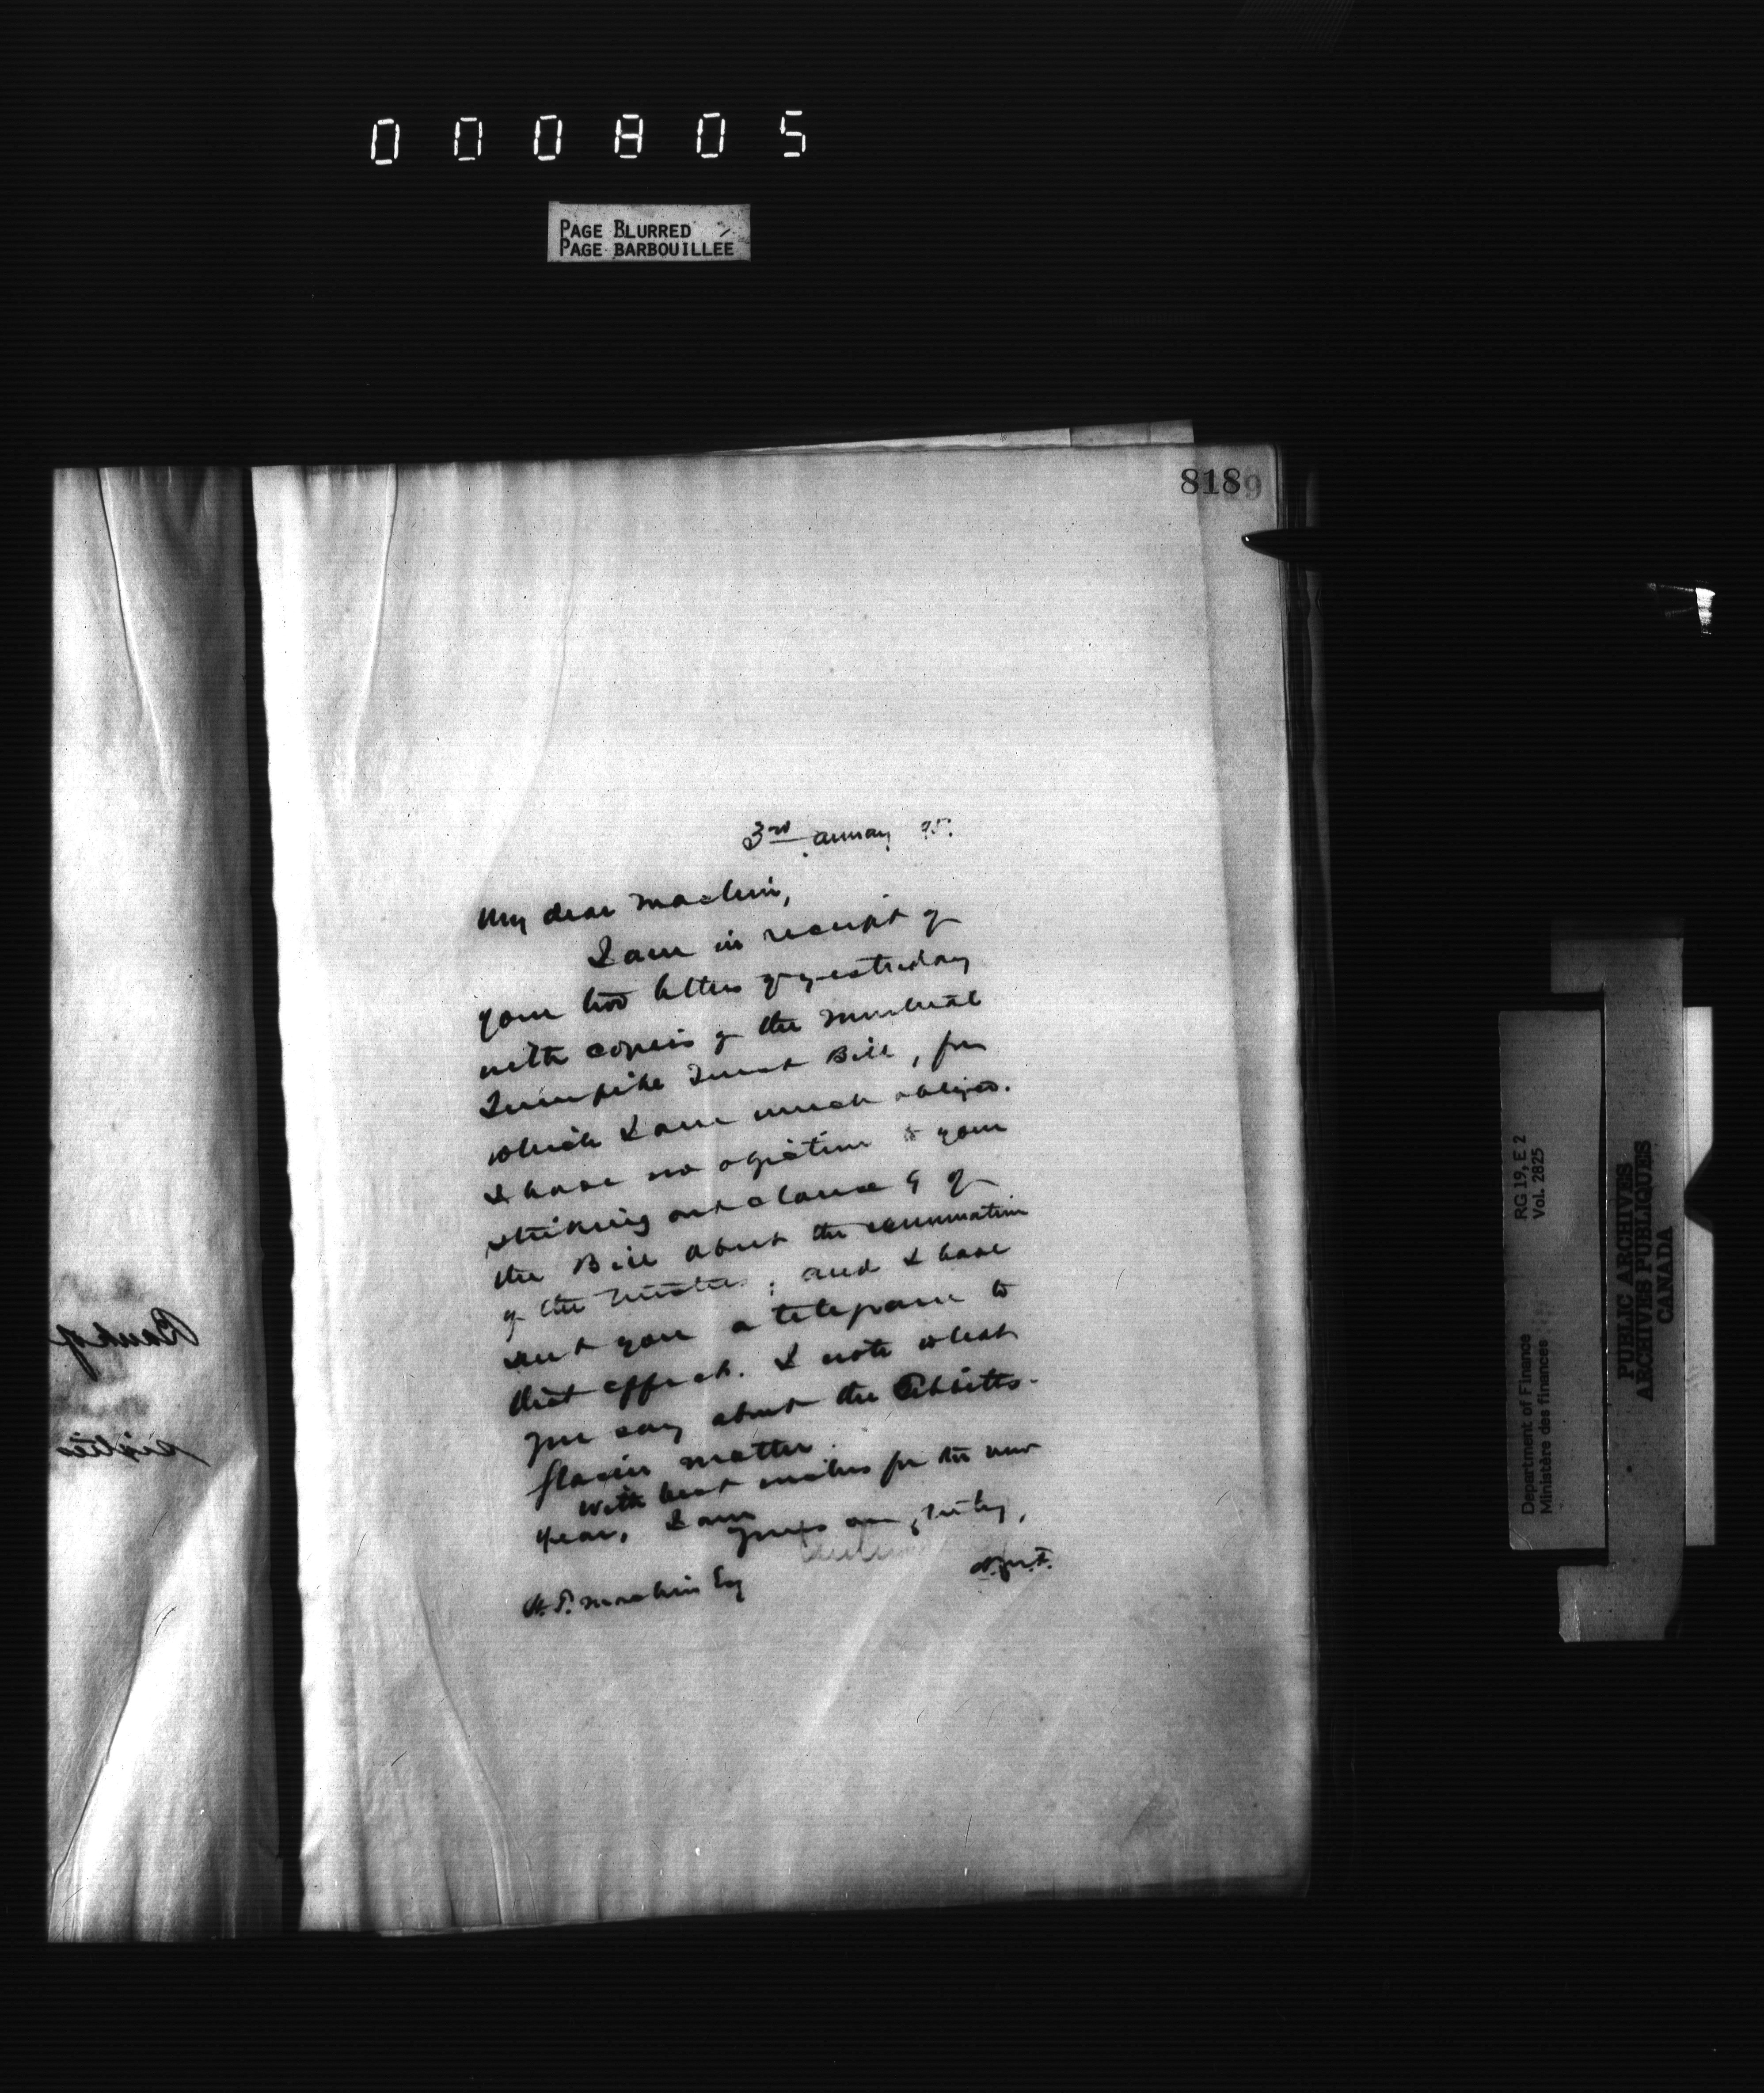 000805
PAGE BLURRED
PAGE BARBOUILLEE
818
9
3rd January 95.
My dear Machin,
I am in receipt of
your two letters of yesterday
with copies of the Montreal
Turnpike Trust Bill, for
which I am much obliged.
I have no objection to your
striking out clause 9 of
the Bill about the
of the Trustees; and I have
sent you a telegram to
that effect. I note what
you say about the
matter.
With best wishes for the new
year, I am
Yours truly,
H. T. Machin Esq
RG 19, E 2
Vol. 2825
Department of Finance
Ministère des finances
PUBLIC ARCHIVES
ARCHIVES PUBLIQUES
CANADA